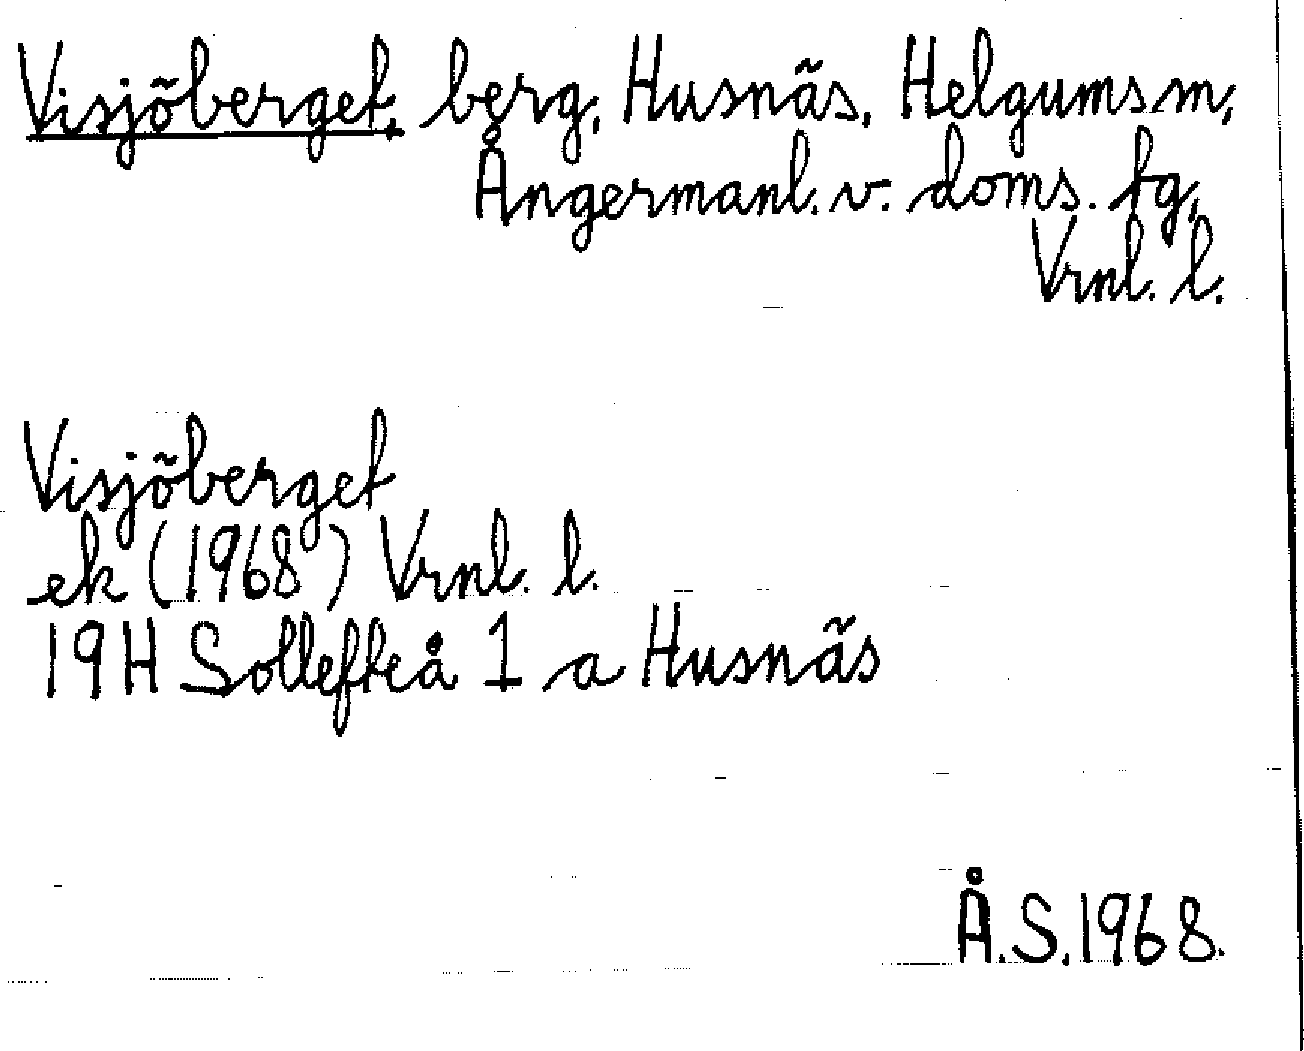 Visjöberget, berg, Husnäs, Helgums sn,
Ångermanl. v. doms. fg,
Vrnl. l.
Visjöberget
ek (1968) Vrnl. l.
19H Sollefteå 1 a Husnäs
Å.S. 1968.